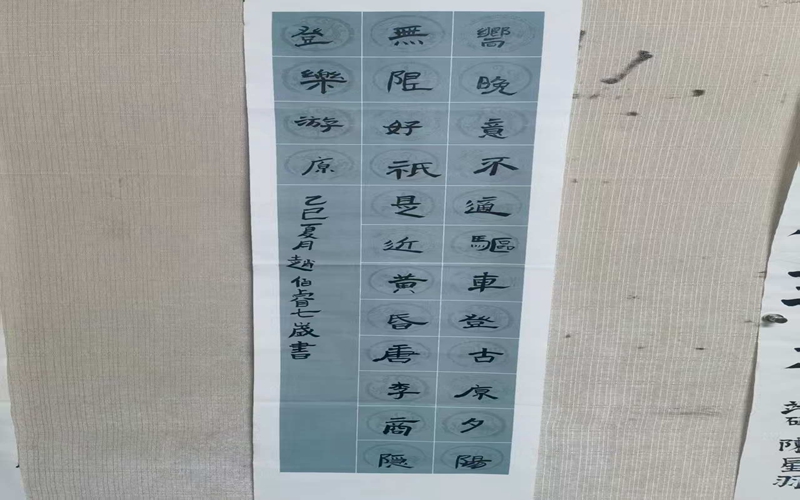 嚮晚意不適驅車登古原夕陽
無限好祇是近黃昏唐李商隱
登樂游原
乙巳夏月趙伯睿七歲書
陳星羽